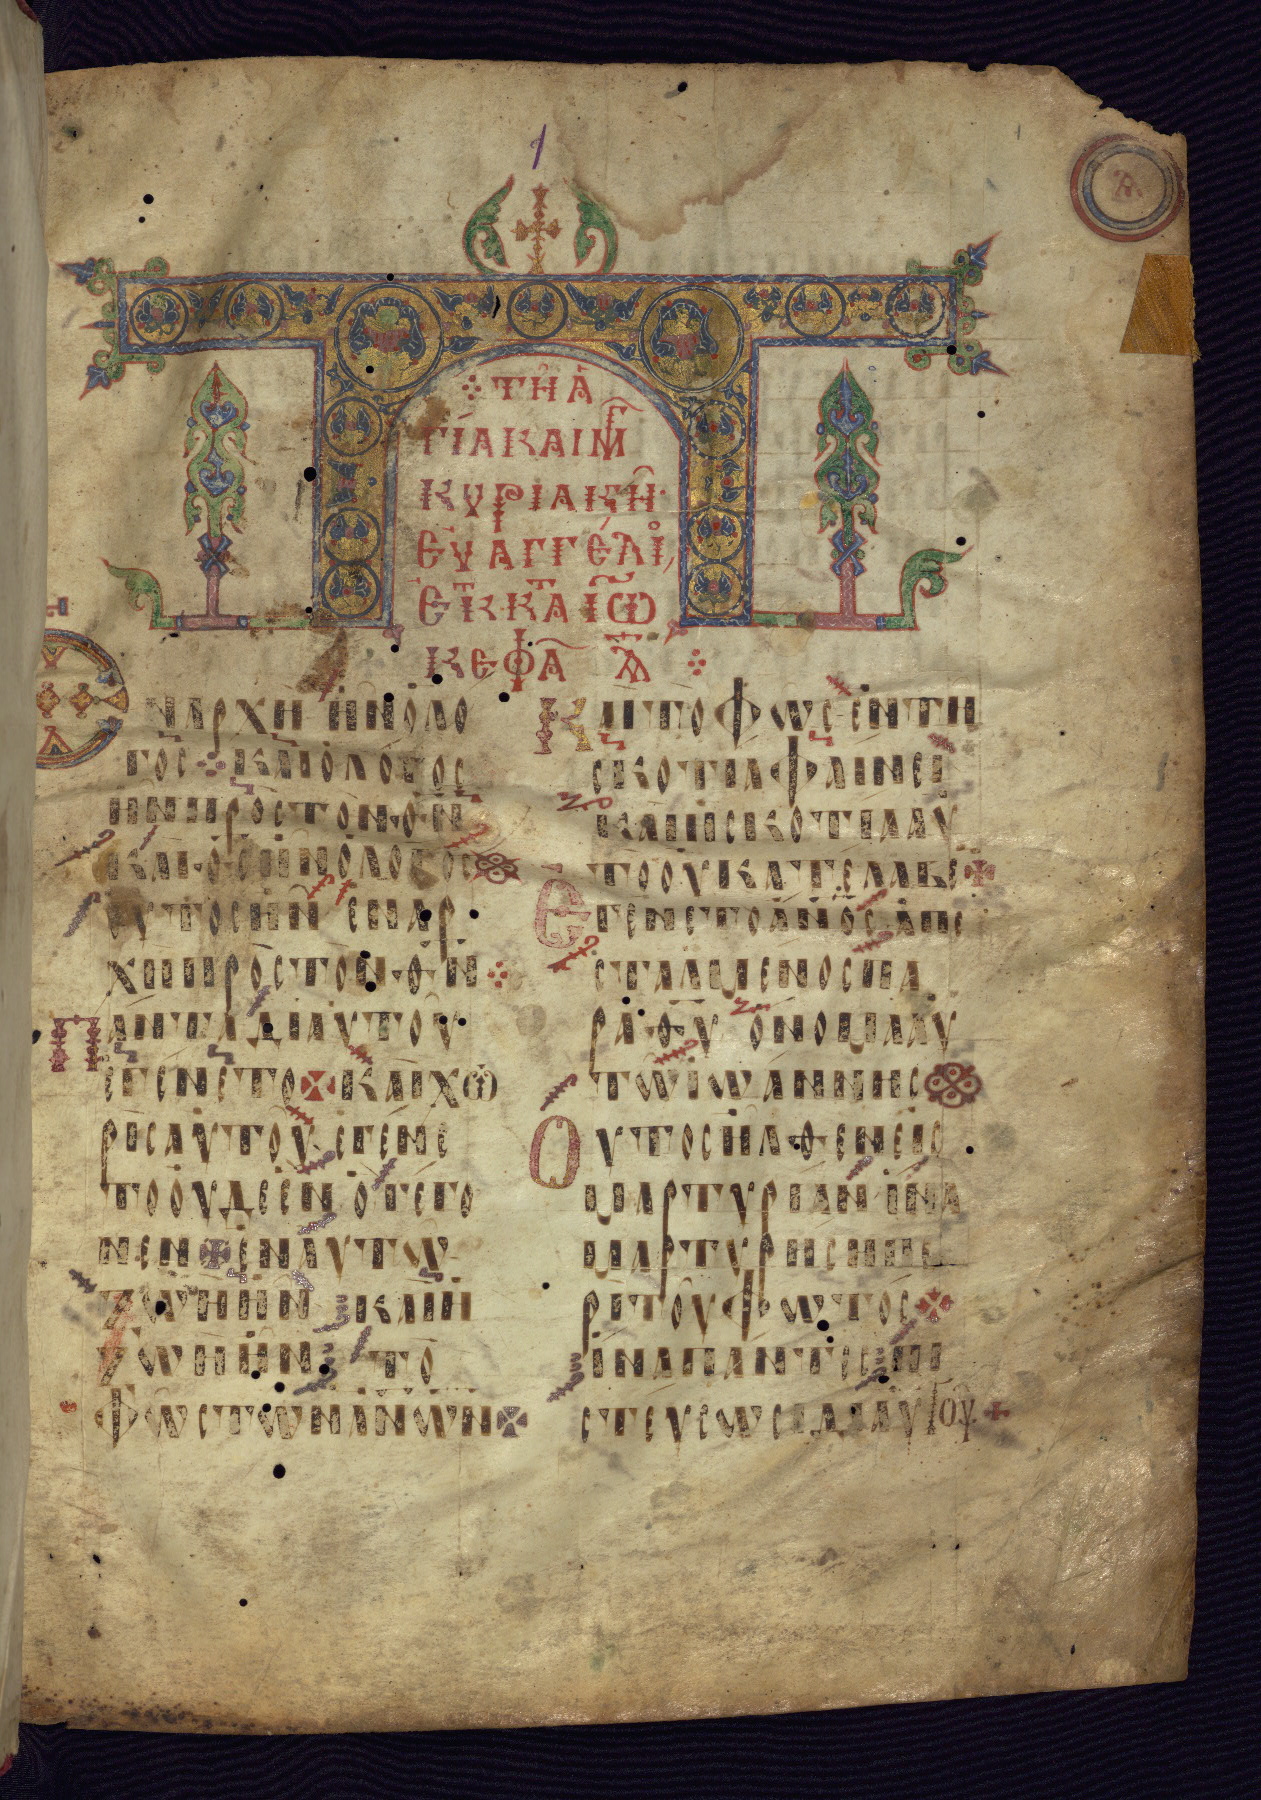 ΤΗ Α
ΓΙΑ ΚΑΙ Μ
ΚΥΡΙΑΚΗ
ΕΥΑΓΓΕΛΙ
ΕΚ Κ̅Τ̅Α ΙΩ
ΚΕΦΑ Α
ΕΝ ΑΡΧΗ ΗΝ Ο ΛΟ
ΓΟΣ ΚΑΙ Ο ΛΟΓΟΣ
ΗΝ ΠΡΟΣ ΤΟΝ Θ̅Ν̅
ΚΑΙ Θ̅Σ̅ ΗΝ Ο ΛΟΓΟΣ
ΟΥΤΟΣ ΗΝ ΕΝ ΑΡ
ΧΗ ΠΡΟΣ ΤΟΝ Θ̅Ν̅
ΠΑΝΤΑ ΔΙ ΑΥΤΟΥ
ΕΓΕΝΕΤΟ ΚΑΙ ΧΩ
ΡΙΣ ΑΥΤΟΥ ΕΓΕΝΕ
ΤΟ ΟΥΔΕ ΕΝ Ο ΓΕΓΟ
ΝΕΝ ΕΝ ΑΥΤΩ
ΖΩΗ ΗΝ ΚΑΙ Η
ΖΩΗ ΗΝ ΤΟ
ΦΩΣ ΤΩΝ Α̅Ν̅ΩΝ
ΚΑΙ ΤΟ ΦΩΣ ΕΝ ΤΗ
ΣΚΟΤΙΑ ΦΑΙΝΕΙ
ΚΑΙ Η ΣΚΟΤΙΑ ΑΥ
ΤΟ ΟΥ ΚΑΤΕΛΑΒΕ
ΕΓΕΝΕΤΟ Α̅Ν̅Ο̅Σ̅ ΑΠΕ
ΣΤΑΛΜΕΝΟΣ ΠΑ
ΡΑ Θ̅Υ̅ ΟΝΟΜΑ ΑΥ
ΤΩ ΙΩΑΝΝΗΣ
ΟΥΤΟΣ ΗΛΘΕΝ ΕΙΣ
ΜΑΡΤΥΡΙΑΝ ΙΝΑ
ΜΑΡΤΥΡΗΣΗ ΠΕ
ΡΙ ΤΟΥ ΦΩΤΟΣ
ΙΝΑ ΠΑΝΤΕΣ ΠΙ
ΣΤΕΥΣΩΣΙ ΔΙ ΑΥΤΟΥ